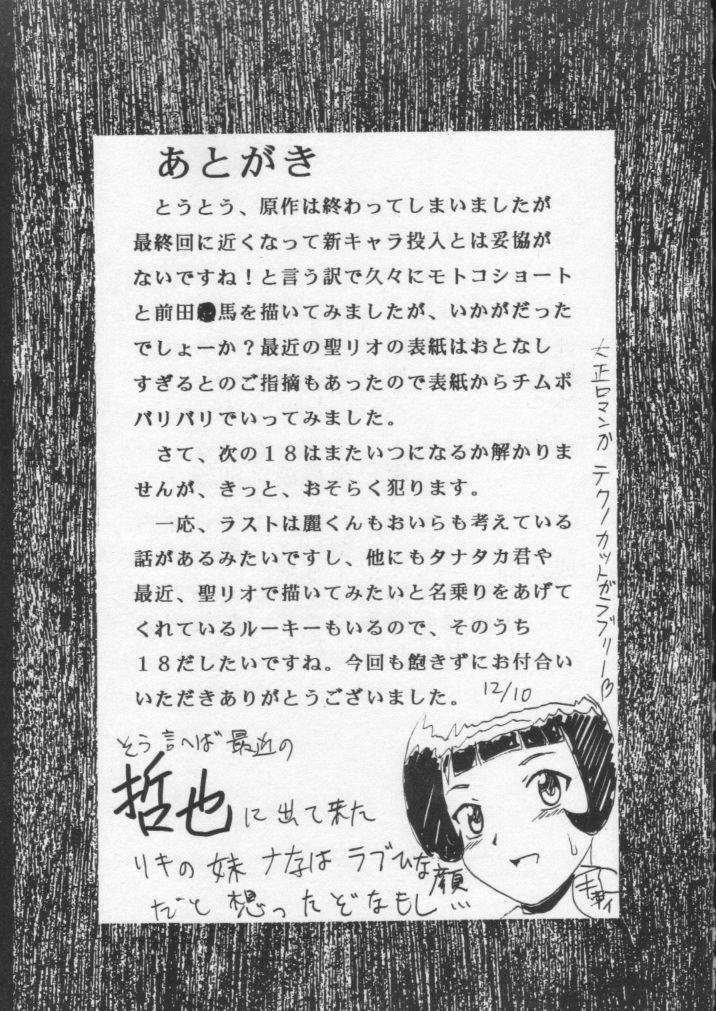 あとがき
とうとう、原作は終わってしまいましたが
最終回に近くなって新キャラ投入とは妥協が
ないですね！と言う訳で久々にモトコショート
と前田馬を描いてみましたが、いかがだった
でしょーか？最近の聖リオの表紙はおとなし
すぎるとのご指摘もあったので表紙からチムポ
バリバリでいってみました。
さて、次の１８はまたいつになるか解かりま
せんが、きっと、おそらく犯ります。
一応、ラストは麗くんもおいらも考えている
話があるみたいですし、他にもタナタカ君や
最近、聖リオで描いてみたいと名乗りをあげて
くれているルーキーもいるので、そのうち
１８だしたいですね。今回も飽きずにお付合い
いただきありがとうございました。 12/10
大正ロマンか テクノカットがラブリー♡
そう言へば最近の
哲也に出て来た
リキの妹ナナはラブひな顔
だと想ったぞなもし